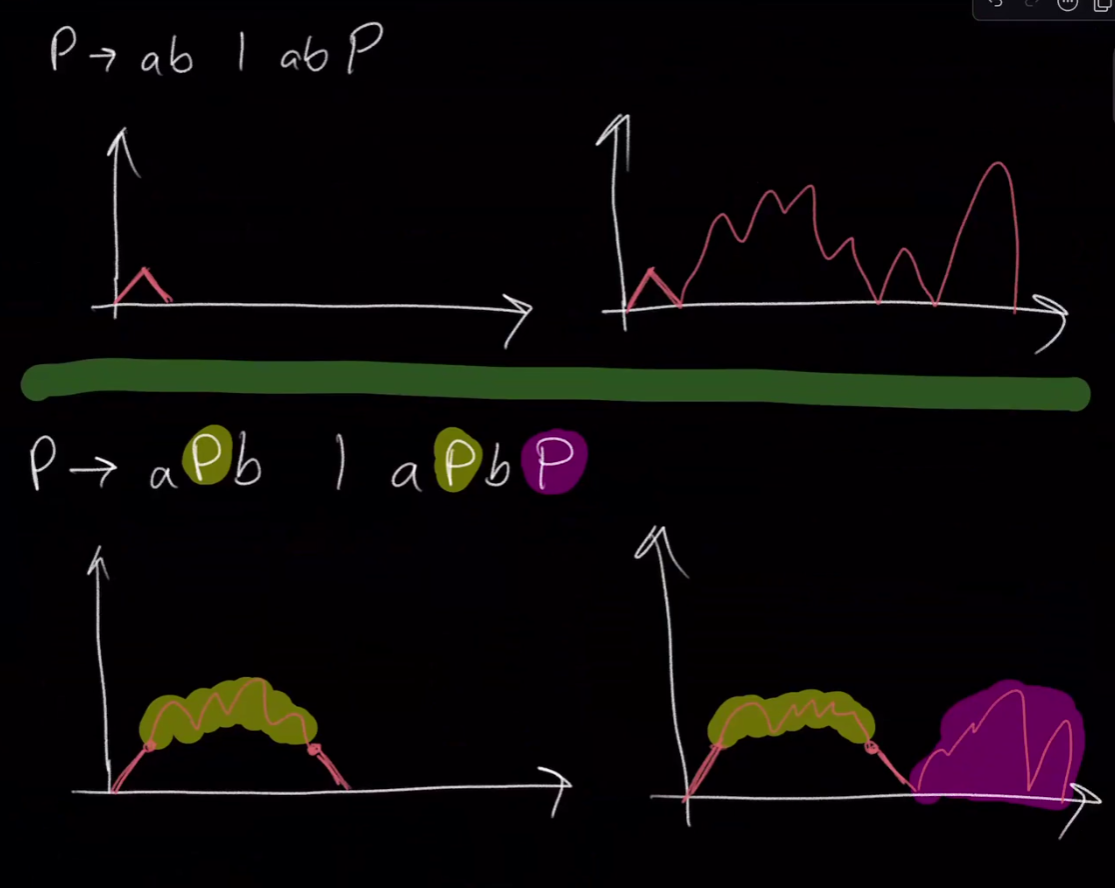 P → ab | abP
P → aPb | aPbP